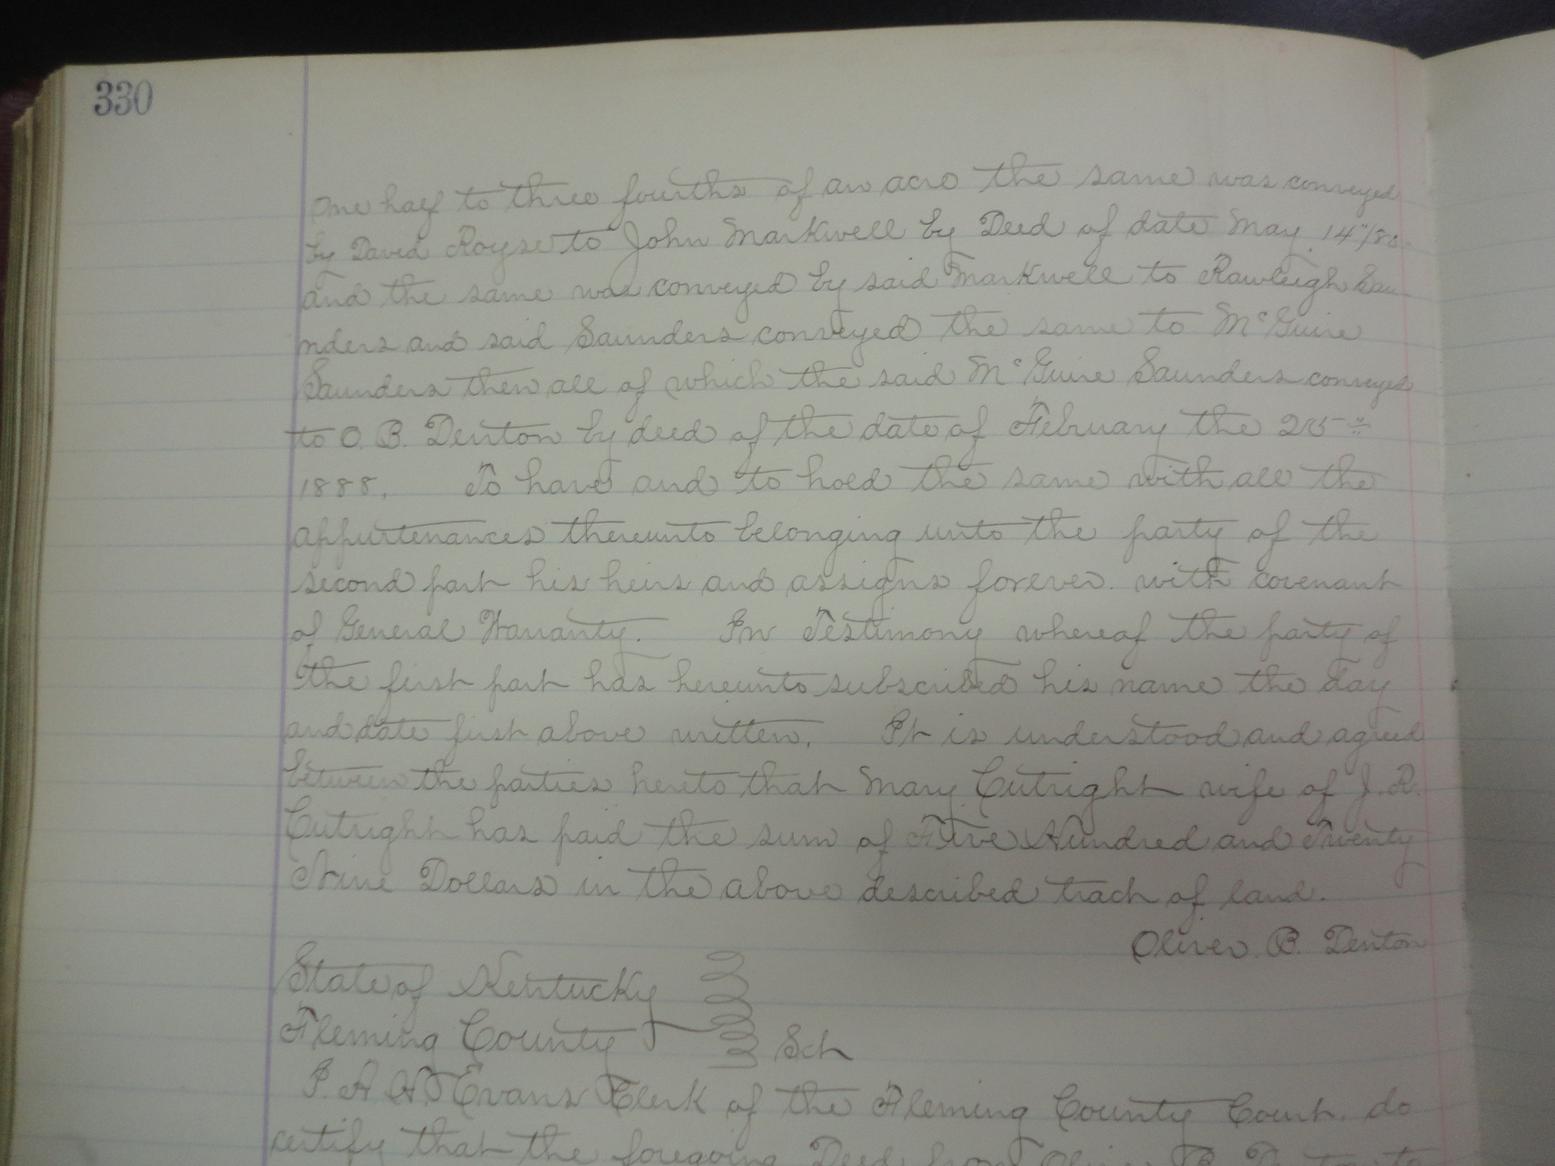 330
One half to three fourths of an acre the same was conveyed
by David Royse to John Markwell by Deed of date May 14"/88
and the same was conveyed by said Markwell to Rawleigh Sau
nders and said Saunders conveyed the same to McGuire
Saunders then all of which the said McGuire Saunders conveyed
to O. B. Denton by deed of the date of February the
1888. To have and to hold the same with all the
appurtenances thereunto belonging unto the party of the
second part his heirs and assigns forever. with covenant
of General Warranty. In Testimony whereof the party of
the first part has hereunto subscribed his name the day
and date first above written. It is understood and agreed
between the parties hereto that Mary Cutright wife of J. R.
Cutright has paid the sum of Five Hundred and Twenty
Nine Dollars in the above described tract of land.
Oliver B. Denton
State of Kentucky
Fleming County Sct
I. A. H. Evans Clerk of the Fleming County Court. do
certify that the foregoing Deed from Oliver B. Denton to